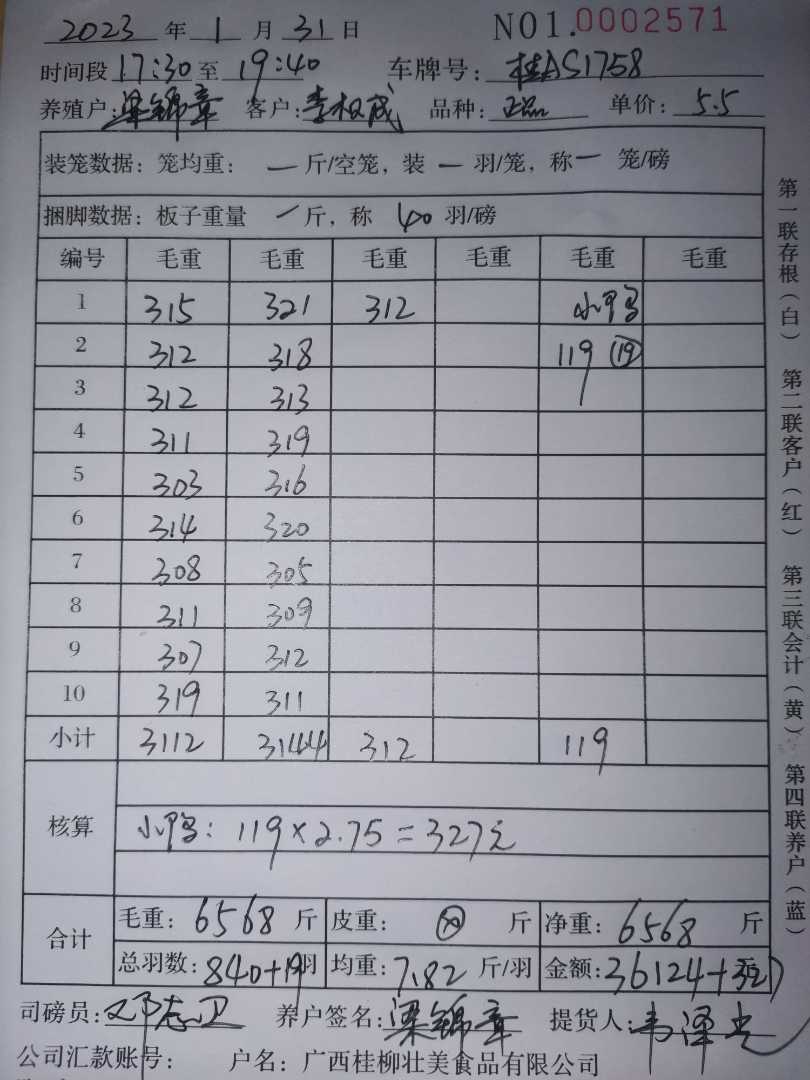 2023 年 1 月 31 日 NO1.0002571
时间段 17:30 至 19:40 车牌号: 桂AS1758
养殖户: 梁锦章 客户: 李权成 品种: 正品 单价: 5.5
装笼数据: 笼均重: 一 斤/空笼, 装 一 羽/笼, 称 一 笼/磅
捆脚数据: 板子重量 一 斤, 称 40 羽/磅
编号 毛重 毛重 毛重 毛重 毛重 毛重
1 315 321 312 小鸭
2 312 318 119 (19)
3 312 313
4 311 319
5 303 316
6 314 320
7 308 305
8 311 309
9 307 312
10 319 311
小计 3112 3144 312 119
核算 小鸭: 119×2.75=327元
合计 毛重: 6568 斤 皮重: 斤 净重: 6568 斤
总羽数: 840+19羽 均重: 7.82 斤/羽 金额: 36124+327
司磅员: 邓志卫 养户签名: 梁锦章 提货人: 韦泽
公司汇款账号: 户名: 广西桂柳壮美食品有限公司
第一联存根(白) 第二联客户(红) 第三联会计(黄) 第四联养户(蓝)